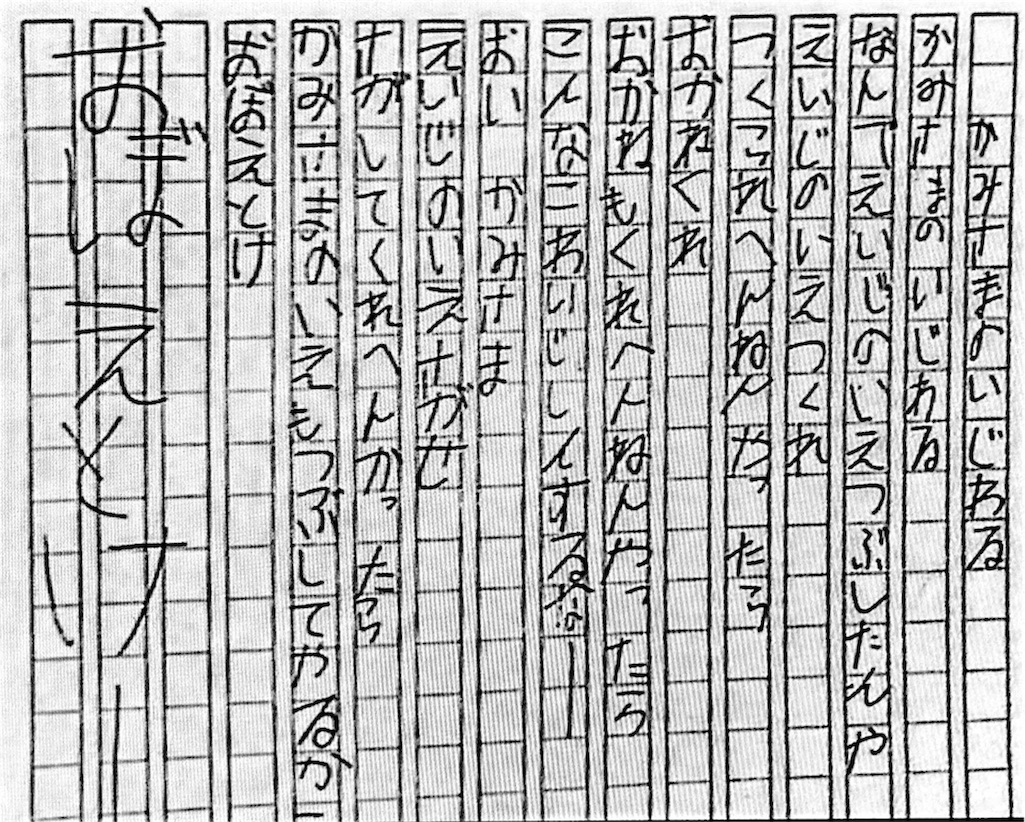 かみさまのいじわる
かみさまのいじわる
なんでえいじのいえつぶしたんや
えいじのいえつくれ
つくられへんねんやったら
おかねくれ
おかねもくれへんねんやったら
こんなこわいじしんするなぁー
おい　かみさま
えいじのいえさがせ
さがしてくれへんかったら
かみさまのいえもつぶしてやるか
おぼえとけ